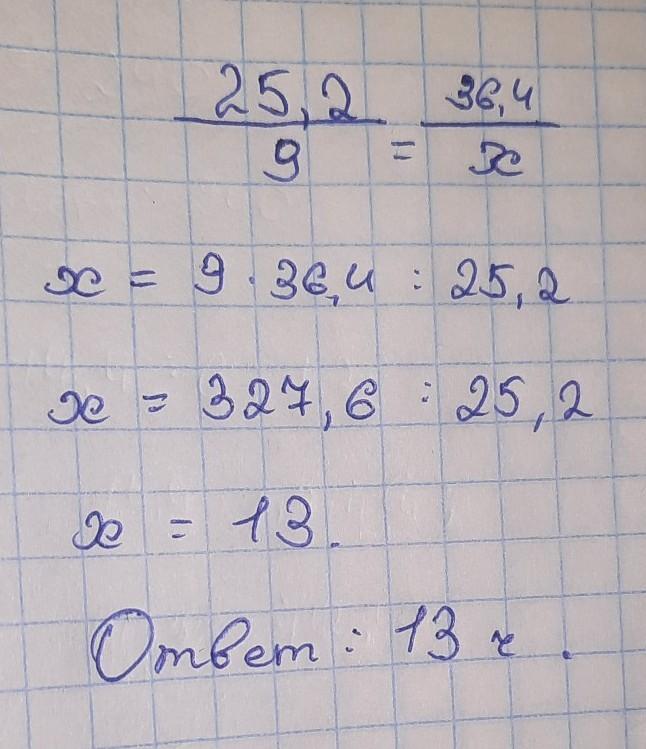 25,2 / 9 = 36,4 / x
x = 9 · 36,4 : 25,2
x = 327,6 : 25,2
x = 13.
Ответ: 13 ч.